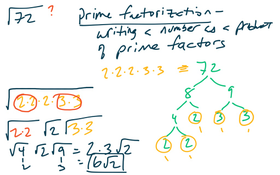 √72 ?
prime factorization -
writing a number as a product
of prime factors
2·2·2·3·3 = 72
8 9
4 2 3 3
2 2
√2·2·2·3·3
√2·2 √2 √3·3
√4 √2 √9 = 2·3√2
2 3 = 6√2